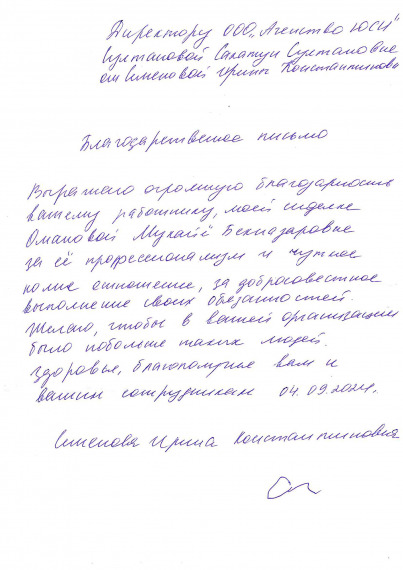 Директору ООО „Агенство ЮСИ"
Султановой Санатун Султановне
от Семеновой Ирины Константиновн
Благодарственное письмо
Выражаю огромную благодарность
вашему работнику, моей сиделке
Омановой Бекназаровне
за её профессионализм и чуткое
ко мне отношение, за добросовестное
выполнение своих обязанностей.
Желаю, чтобы в вашей организации
было побольше таких людей.
Здоровья, благополучие вам и
вашим сотрудникам 04.09.2024.
Семенова Ирина Константиновна